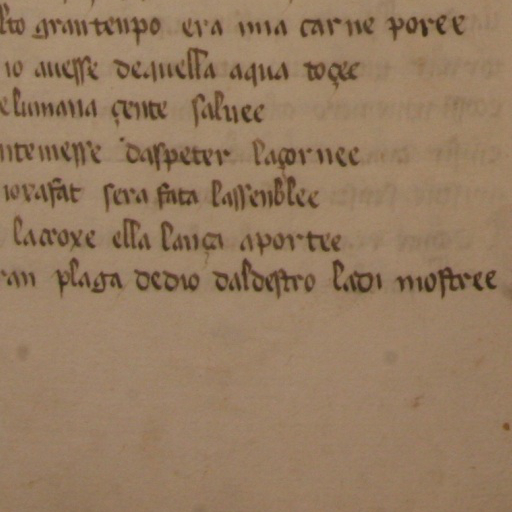 lto gran tenpo era mia carne poree
io auesse dequella aqua toçee
elumana çente saluee
ntemesse daspeter laçornee
iorafat sera fata lassenblee
la croxe ella lança aportee
ran plaga dedio daldestro ladi mostree